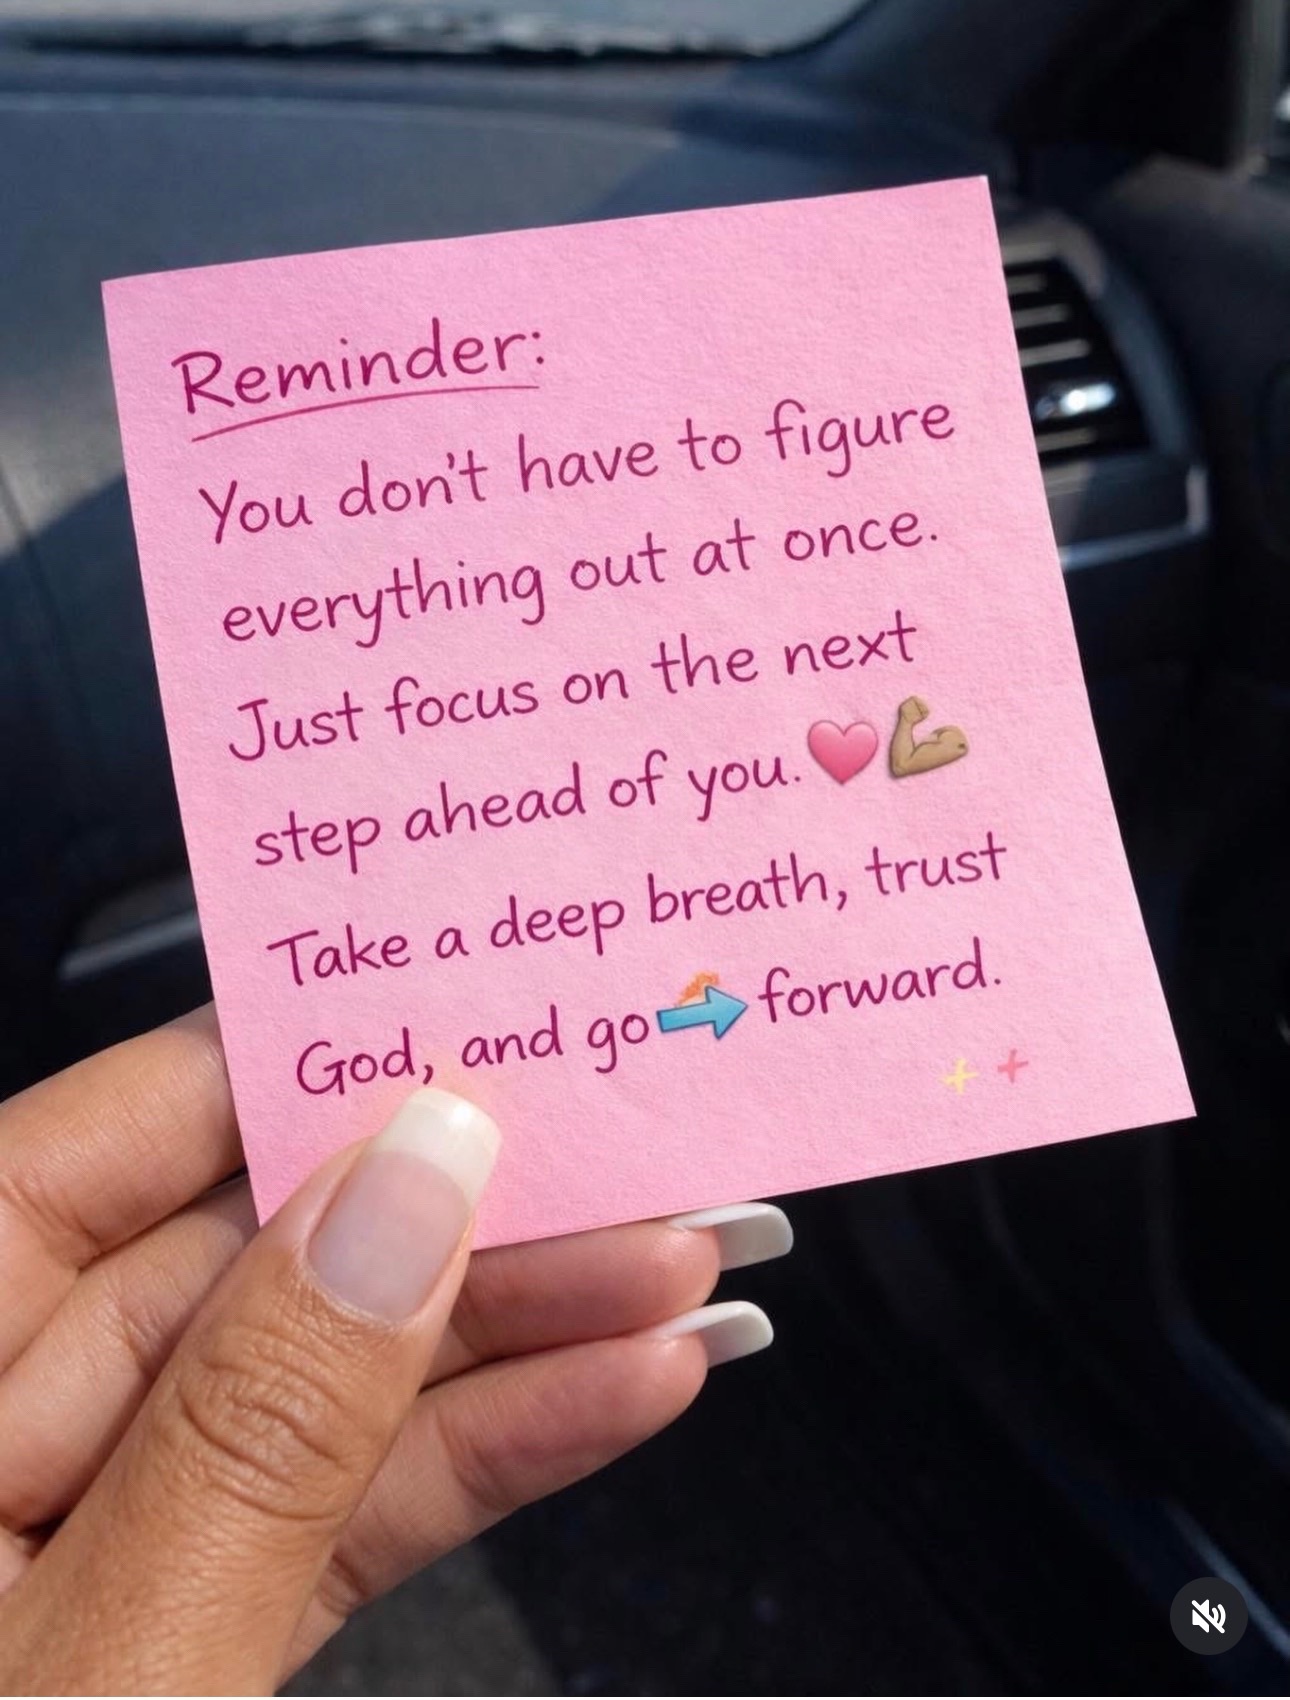 Reminder:
You don't have to figure
everything out at once.
Just focus on the next
step ahead of you. 🩷💪🏽
Take a deep breath, trust
God, and go ➡️ forward.